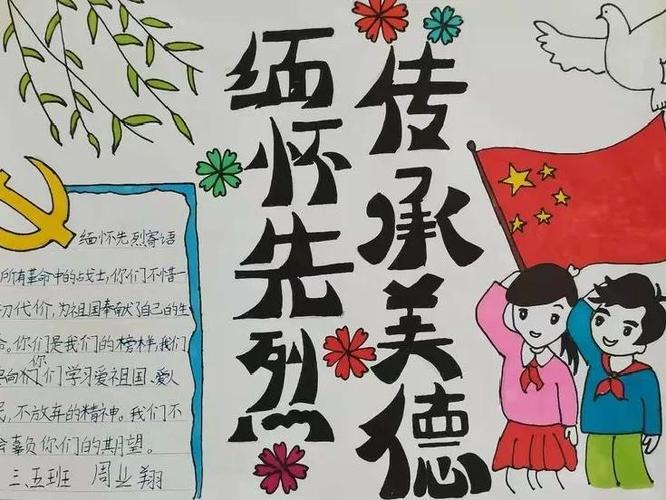 缅怀先烈
传承美德
缅怀先烈寄语
所有革命中的战士,你们不惜一
切代价,为祖国奉献了自己的生
命。你们是我们的榜样,我们
要向你们学习爱祖国、爱人
民,不放弃的精神。我们不
会辜负你们的期望。
三.五班 周业翔